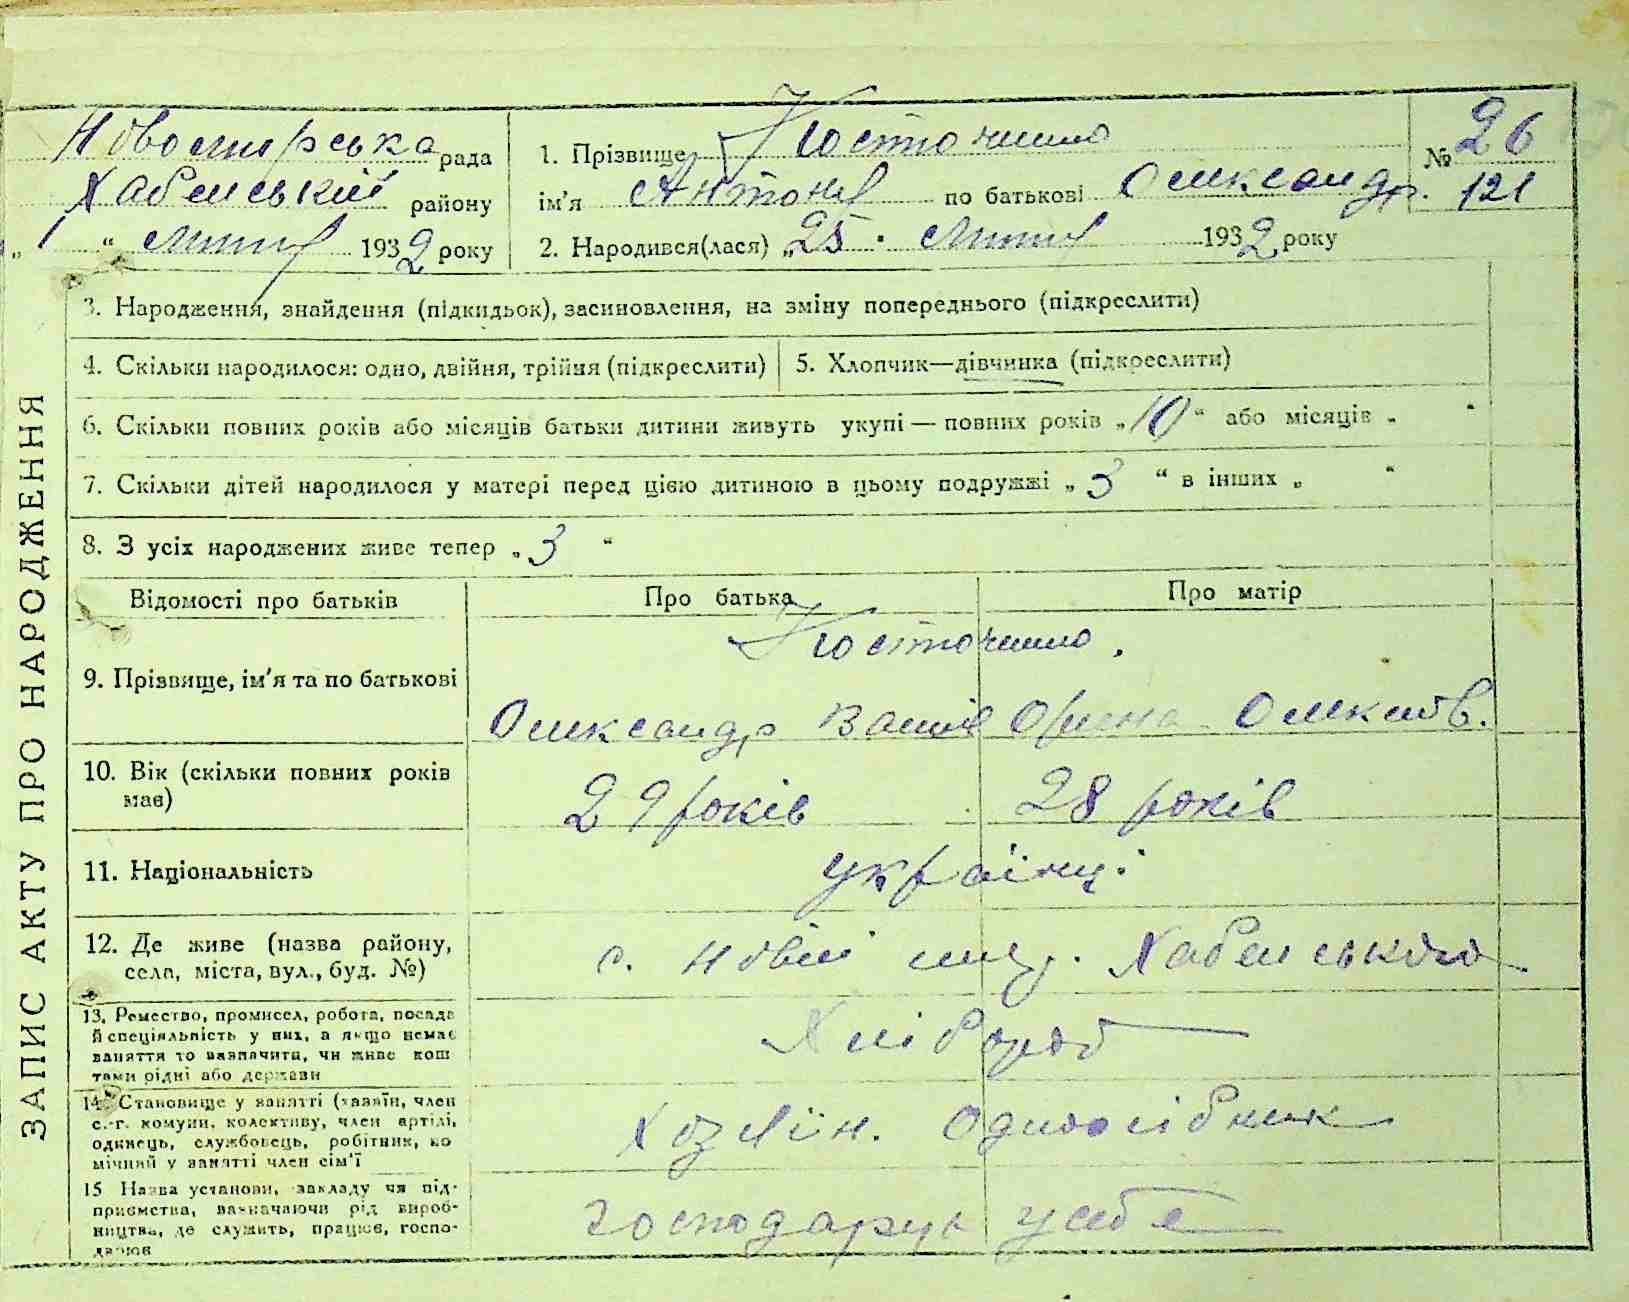 ЗАПИС АКТУ ПРО НАРОДЖЕННЯ
Новомирська рада
Хабенський району
„1“ 1932 року
1. Прізвище Костюченко
ім'я Антоніна по батькові Олександр.
№ 26
121
2. Народився(лася) „25. 1932 року
3. Народження, знайдення (підкидьок), засиновлення, на зміну попереднього (підкреслити)
4. Скільки народилося: одно, двійня, трійня (підкреслити)
5. Хлопчик—дівчинка (підкреслити)
6. Скільки повних років або місяців батьки дитини живуть укупі — повних років „10“ або місяців „ “
7. Скільки дітей народилося у матері перед цією дитиною в цьому подружжі „3“ в інших „ “
8. З усіх народжених живе тепер „3“
Відомості про батьків
Про батька
Про матір
9. Прізвище, ім'я та по батькові
Олександр Орина
10. Вік (скільки повних років має)
29 років
28 років
11. Національність
українці
12. Де живе (назва району, села, міста, вул., буд. №)
с. Новий мир. Хабенського
13. Ремество, промисел, робота, посада й спеціяльність у них, а якщо немає заняття то зазначити, чи живе коштами рідні або держави
Хлібороб
14. Становище у занятті (хазяїн, член с.-г. комуни, колективу, член артілі, одинець, службовець, робітник, помічний у занятті член сім'ї
Хозяїн. Одноосібник
15 Назва установи, закладу чи підприємства, зазначаючи рід виробництва, де служить, працює, господарює
господарує у себе